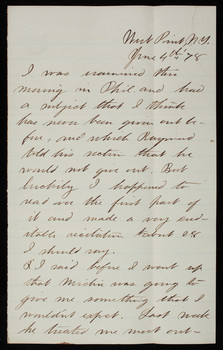 West Point, N.Y.
June 4th 78
I was examined this
morning on Phil and had
a subject that I think
has never been given out be-
fore, and which Raymond
told his section that he
would not give out. But
luckily I happened to
read over the first part
of it and made a very
recitation about 28
I should say.
I said before I went up
that Michie was going to
give me something that I
wouldn't expect. Last week
he treated me most out-